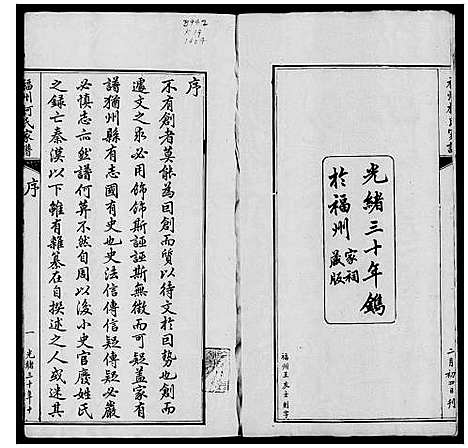 光緒三十年鐫
於福州
家祠
藏版
二月初四日刊
福州王友士刻字
序
不有創者莫能為因創而質以待文於因勢也創而
遽文之泉必用飾飾斯誣誣斯無徵而可疑蓋家有
譜猶州縣有志國有史也史法信傳信疑傳疑必嚴
必慎志亦然譜何莫不然自周以後小史官廢姓氏
之錄亡秦漢以下雖有雜纂在自撰述之人或述其
福州何氏家譜
序
一
光緒三十年十